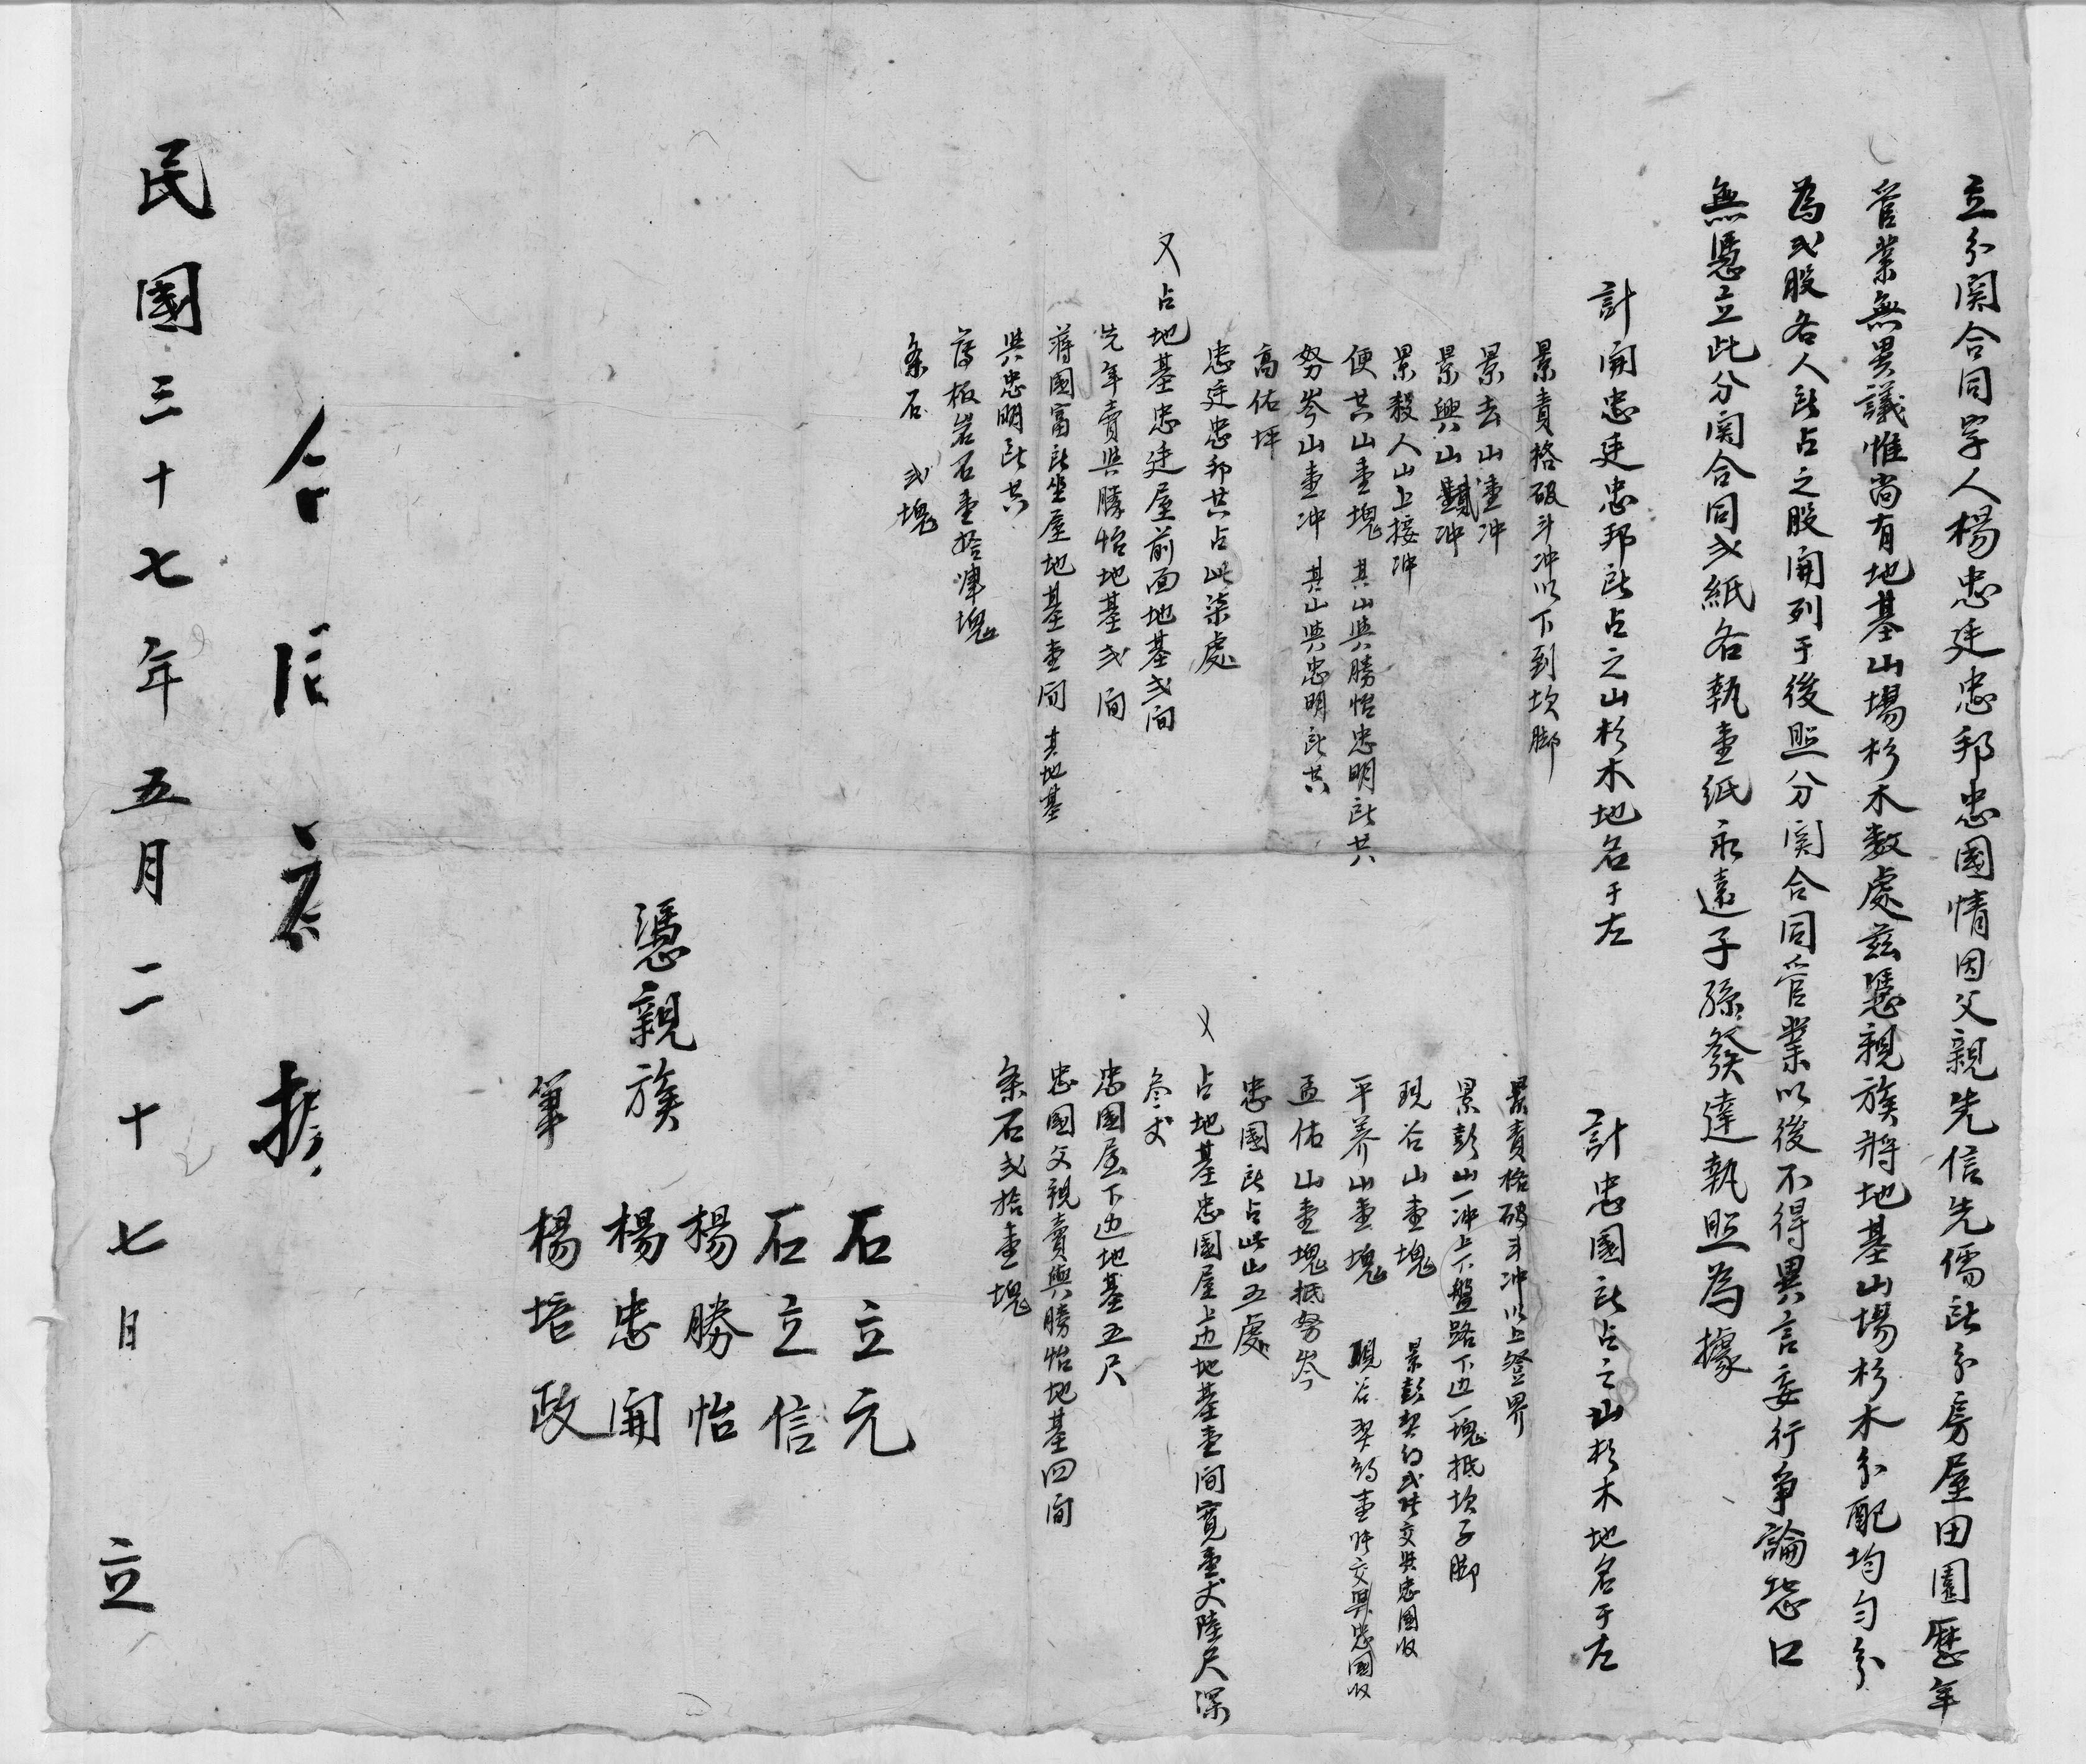 立分関合同字人楊忠廷忠邦忠國情因父親先信先儒所分房屋田園歷年
管業無異議惟尚有地基山場杉木数處茲憑親族將地基山場杉木分配均匀分
為弍股各人所占之股開列于後照分関合同管業以後不得異言妄行争論恐口
無憑立此分関合同弍紙各執壹紙永遠子孫發達執照為據
計開忠廷忠邦所占之山杉木地名于左
景責格破斗冲以下到坎脚
景去山壹冲
景興山冲
景殺人山上接冲
便共山壹塊 其山與勝怡忠明所共
努岑山壹冲 其山與忠明所共
高佑坪
忠廷忠邦共占此柒處
又占地基忠廷屋前面地基弍间
先年賣與勝怡地基弍间
蒋國富所坐屋地基壹间 其地基
與忠明所共
薄板岩石壹拾肆塊
条石 弍塊
計忠國所占之山杉木地名于左
景責格破斗冲以上登界
景彭山一冲上下盤路下边一塊抵坎子脚
現谷山壹塊 景彭契约弍张交與忠國收
平养山壹塊 現谷契约壹张交與忠國收
孟佑山壹塊抵努岑
忠國所占此山五處
又占地基忠國屋上边地基壹间寬壹丈陸尺深
叁丈
忠國屋下边地基五尺
忠國父親賣與勝怡地基四间
条石弍拾壹塊
石立元
石立信
憑親族 楊勝怡
楊忠開
筆 楊培政
合同為據
民國三十七年五月二十七日 立